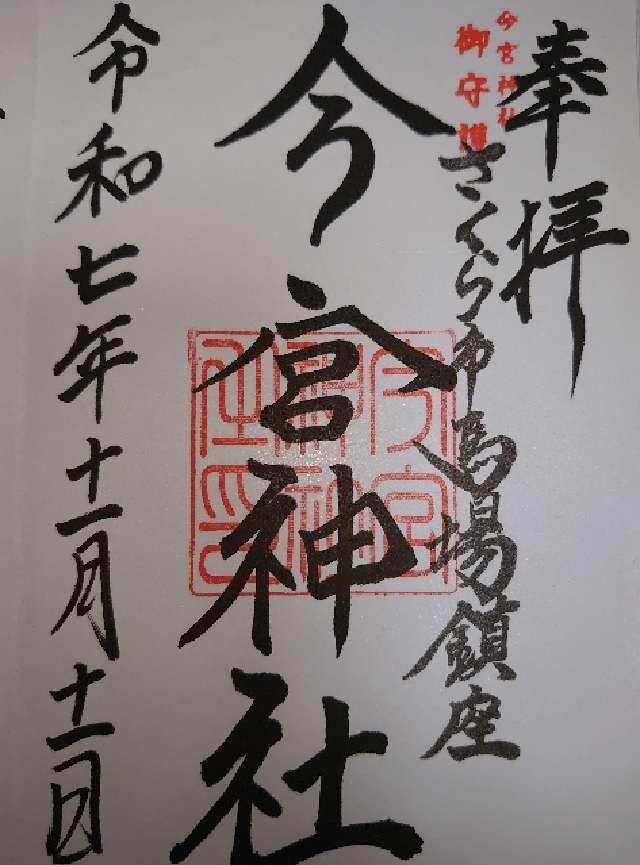 奉拝
今宮神社
御守護
さくら市馬場鎮座
今宮神社
令和七年十一月十一日